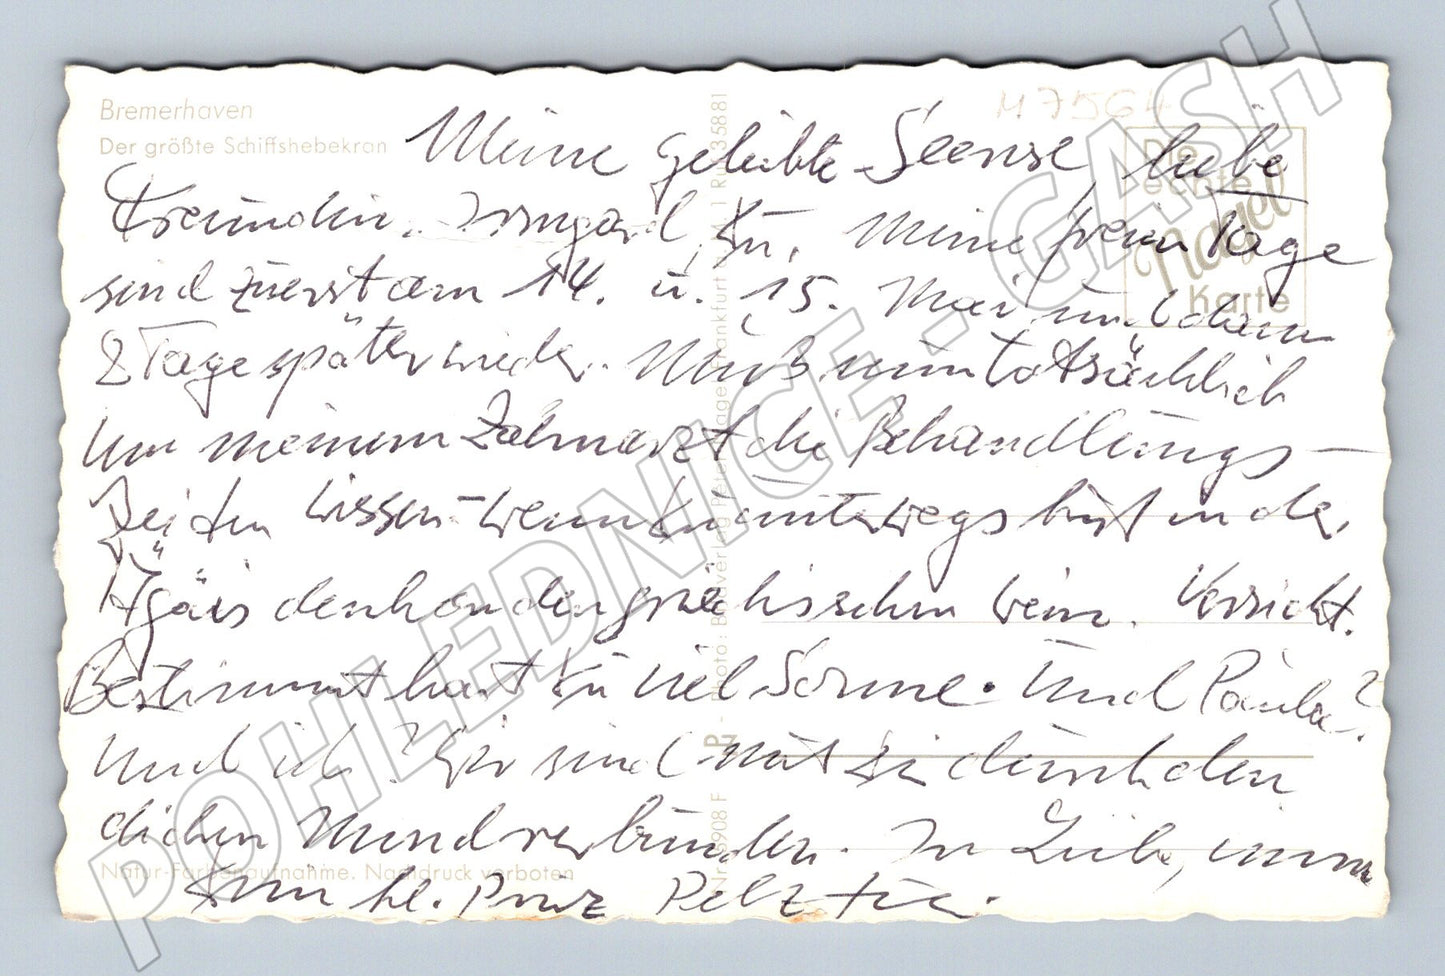 Bremerhaven
Der größte Schiffshebekran
M 7564
Die
echte
Nagel
Karte
Meine geliebte liebe
Freundin, Irmgard, Du, Meine freien Tage
sind zuerst am 14. u. 15. Mai und dann
8 Tage später wieder. Muß nun tatsächlich
um meinem Zahnarzt die Behandlungs-
Zeiten wissen - wenn Du unterwegs bist in der
Ägäis den griechischen Wein. Verzicht.
Bestimmt hast Du viel Sonne. Und Paula?
Und ich? Wir sind mit Dir durch den
Mund verbunden. In Liebe, immer
Dein kl. Prinz
Natur-Farbenaufnahme. Nachdruck verboten
POHLEDNICE - GASH